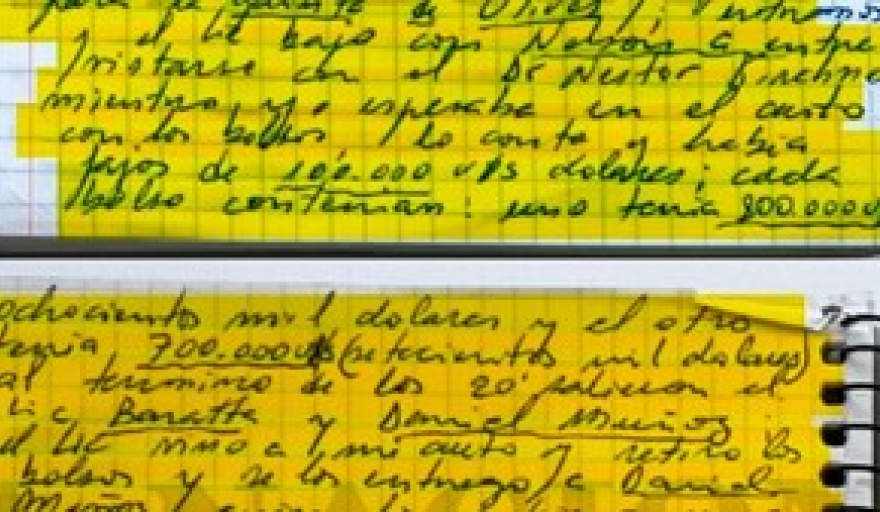 para la quinta de Olivos);
y el Lic bajo con Nelson a entre
vistarse con el Dr Nestor Kirchne
mientras yo esperaba en el auto
con los bolsos / lo conte y habia
fajos de 100.000 u$s dolares; cada
bolso contenian: uno tenia 800.000 u
ochocientos mil dolares y el otro
tenia 700.000 u$s (setecientos mil dolares)
al termino de los 20' salieron el
Lic Baratta y Daniel Muñoz
el Lic vino a mi auto y retiro los
bolsos y se los entrego/a Daniel
Muñoz